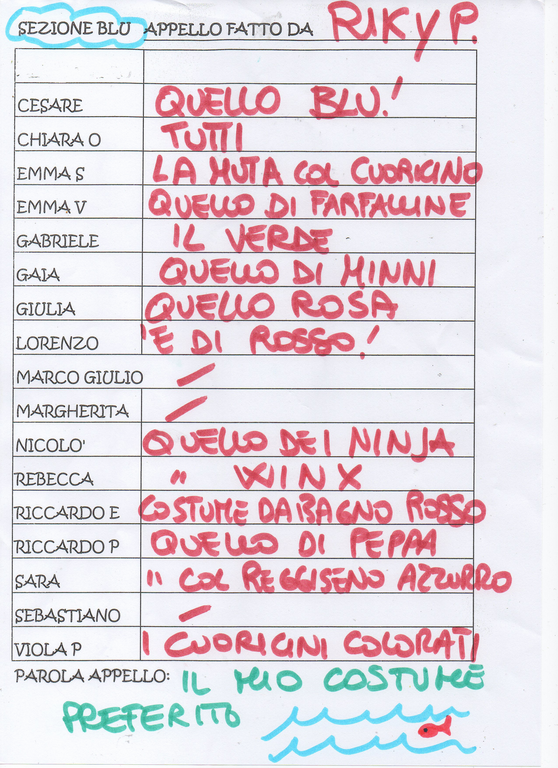 SEZIONE BLU APPELLO FATTO DA RIKY P.
CESARE QUELLO BLU!
CHIARA O TUTTI
EMMA S LA MUTA COL CUORICINO
EMMA V QUELLO DI FARFALLINE
GABRIELE IL VERDE
GAIA QUELLO DI MINNI
GIULIA QUELLO ROSA
LORENZO 'E DI ROSSO!
MARCO GIULIO /
MARGHERITA /
NICOLO' QUELLO DEI NINJA
REBECCA " WINX
RICCARDO E COSTUME DA BAGNO ROSSO
RICCARDO P QUELLO DI PEPPA
SARA " COL REGGISENO AZZURRO
SEBASTIANO /
VIOLA P I CUORICINI COLORATI
PAROLA APPELLO: IL MIO COSTUME
PREFERITO